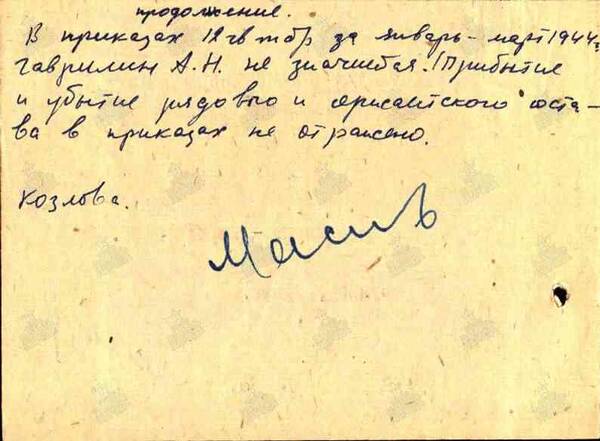 продолжение.
В приказах 12 гв тбр за январь - март 1944г.
Гаврилин А.Н. не значится. Прибытие
и убытие рядового и сержантского соста-
ва в приказах не отражено.
Козлова.